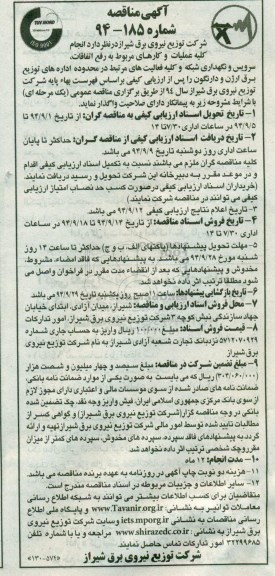 آگهی مناقصه
شماره ۱۸۵-۹۴
شرکت توزیع نیروی برق شیراز در نظر دارد انجام
کلیه عملیات و کارهای مربوط به رفع اتفاقات،
سرویس و نگهداری شبکه و کلیه فعالیت های مرتبط در محدوده اداره های توزیع
برق ارژن و دارنگون را پس از ارزیابی کیفی بر اساس فهرست بهاء پایه شرکت
توزیع نیروی برق شیراز سال ۹۴ از طریق برگزاری مناقصه عمومی (یک مرحله ای)
با شرایط مشروحه زیر به پیمانکار دارای صلاحیت واگذار نماید.
۱- تاریخ تحویل اسناد ارزیابی کیفی به مناقصه گران: از تاریخ ۹۴/۹/۱ تا
۹۴/۹/۵ در ساعات اداری ۷/۳۰ تا ۱۴
۲- تاریخ دریافت اسناد ارزیابی کیفی از مناقصه گران: حداکثر تا پایان
ساعت اداری روز دوشنبه تاریخ ۹۴/۹/۹ می باشد.
کلیه مناقصه گران ملزم می باشند نسبت به تکمیل اسناد ارزیابی کیفی اقدام
و در موعد مقرر به دبیرخانه این شرکت تحویل و رسید دریافت نمایند.
(خریداران اسناد ارزیابی کیفی در صورت کسب حد نصاب امتیاز ارزیابی
کیفی می توانند در مناقصه شرکت نمایند)
۳- تاریخ اعلام نتایج ارزیابی کیفی ۹۴/۹/۱۲ می باشد.
۴- تاریخ فروش اسناد مناقصه: از تاریخ ۹۴/۹/۱۳ تا ۹۴/۹/۱۸ در ساعات
اداری ۷/۳۰ تا ۱۴
۵- مهلت تحویل پیشنهادها (پاکتهای الف، ب و ج) حداکثر تا ساعت ۱۳ روز
شنبه مورخ ۹۴/۹/۲۸ می باشد. به پیشنهادهایی که فاقد امضاء، مشروط،
مخدوش و پیشنهادهایی که بعد از انقضاء مدت مقرر در فراخوان واصل می
شود مطلقا ترتیب اثر داده نخواهد شد.
۶- تاریخ بازگشایی پیشنهادها: ساعت ۱۱ صبح روز یکشنبه تاریخ ۹۴/۹/۲۹ می باشد
۷- محل فروش اسناد ارزیابی و مناقصه: شیراز، میدان آزادی، ابتدای خیابان
جهاد سازندگی نبش کوچه ۳ شرکت توزیع نیروی برق شیراز، امور تدارکات
۸- قیمت فروش اسناد: مبلغ ۱۰۰/۰۰۰ ریال واریز به حساب جاری شماره
۵۷۱۲۰۷۰۹۲۹ نزد بانک تجارت شعبه آزادی شیراز به نام شرکت توزیع نیروی
برق شیراز
۹- مبلغ تضمین شرکت در مناقصه: مبلغ سیصد و چهار میلیون و شصت هزار
(۳۰۴/۰۶۰/۰۰۰) ریال که می بایست به صورت یکی از موارد ضمانت نامه بانکی،
ضمانت نامه های صادر شده از سوی موسسات مالی و اعتباری دارای مجوز لازم
از سوی بانک مرکزی جمهوری اسلامی ایران، فیش واریز وجه نقد، چک تضمین شده
بانکی در وجه مناقصه گزار (شرکت توزیع نیروی برق شیراز) و گواهی کسر از
مطالبات تایید شده توسط امور مالی شرکت توزیع نیروی برق شیراز تهیه و ارائه
گردد به پیشنهادهای فاقد سپرده، سپرده های مخدوش، سپرده های کمتر از میزان
مقرر و چک شخصی ترتیب اثر داده نخواهد شد.
۱۰- مدت انجام: ۱۲ ماه
۱۱- هزینه دو نوبت چاپ آگهی در روزنامه به عهده برنده مناقصه می باشد.
۱۲- سایر اطلاعات و جزییات مربوطه در اسناد مناقصه مندرج است.
متقاضیان برای کسب اطلاعات بیشتر می توانند به شبکه اطلاع رسانی
معاملات توانیر به نشانی: www.Tavanir.org.ir و پایگاه ملی اطلاع
رسانی مناقصات به نشانی iets.mporg.ir وسایت شرکت توزیع نیروی
برق شیراز به نشانی: www.shirazedc.co.ir مراجعه و یا با شماره تلفن
۳۲۲۹۹۶۸۵ امور تدارکات تماس حاصل نمایند.
شرکت توزیع نیروی برق شیراز